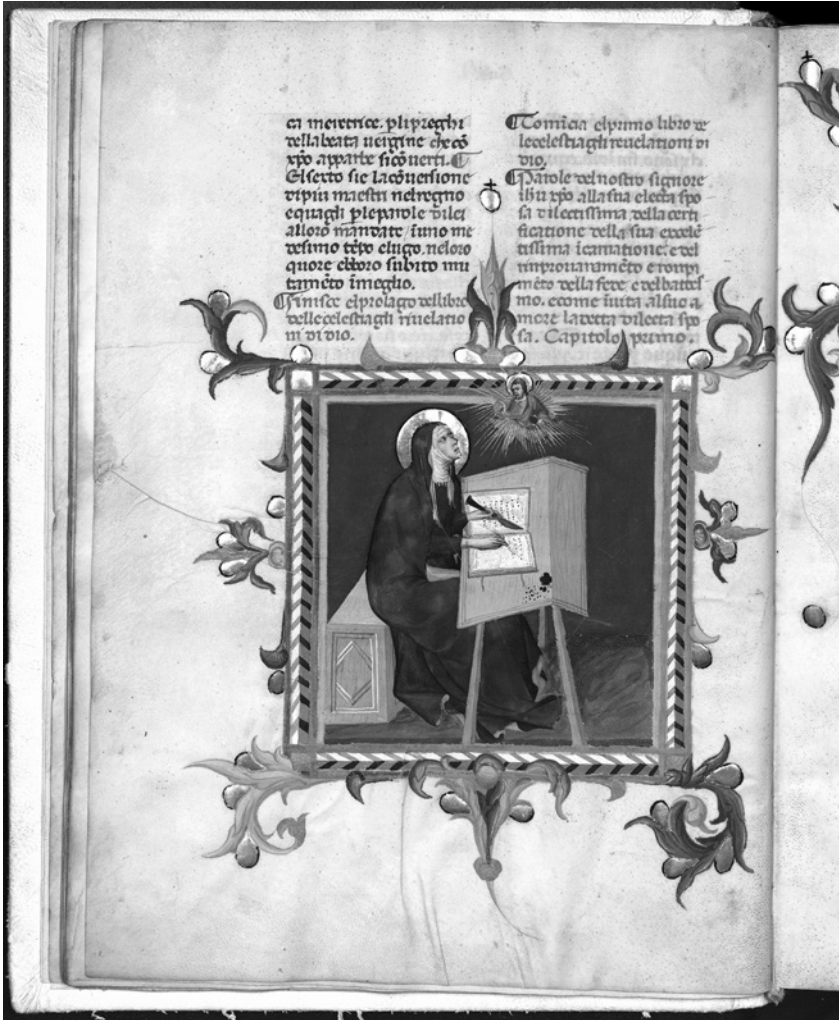 ca meretrice. p̱ li preghi
della beata uergine che cō
xp̄o apparbe si cōuerti.
El sexto sie la cōuersione
di piu maestri nel regno
e quagli p̱ le parole di lei
alloro mandate ī uno me
desimo tēpo e luogo. ne loro
quore ebboro subito mu
tamēto ī meglio.
Finisce el prolago del libro
delle celestiagli riuelatio
ni di dio.
Comīcia el primo libro de
le celestiagli reuelationi di
dio.
Parole del nostro signore
ih̄u xp̄o alla sua electa spo
sa dilectissima della certi
ficatione della sua excelē
tissima īcarnatione: e del
improuaramēto e rompi
mēto della fede e del battes
mo. e come īuita al suo a
more la detta dilecta spo
sa. Capitolo primo.